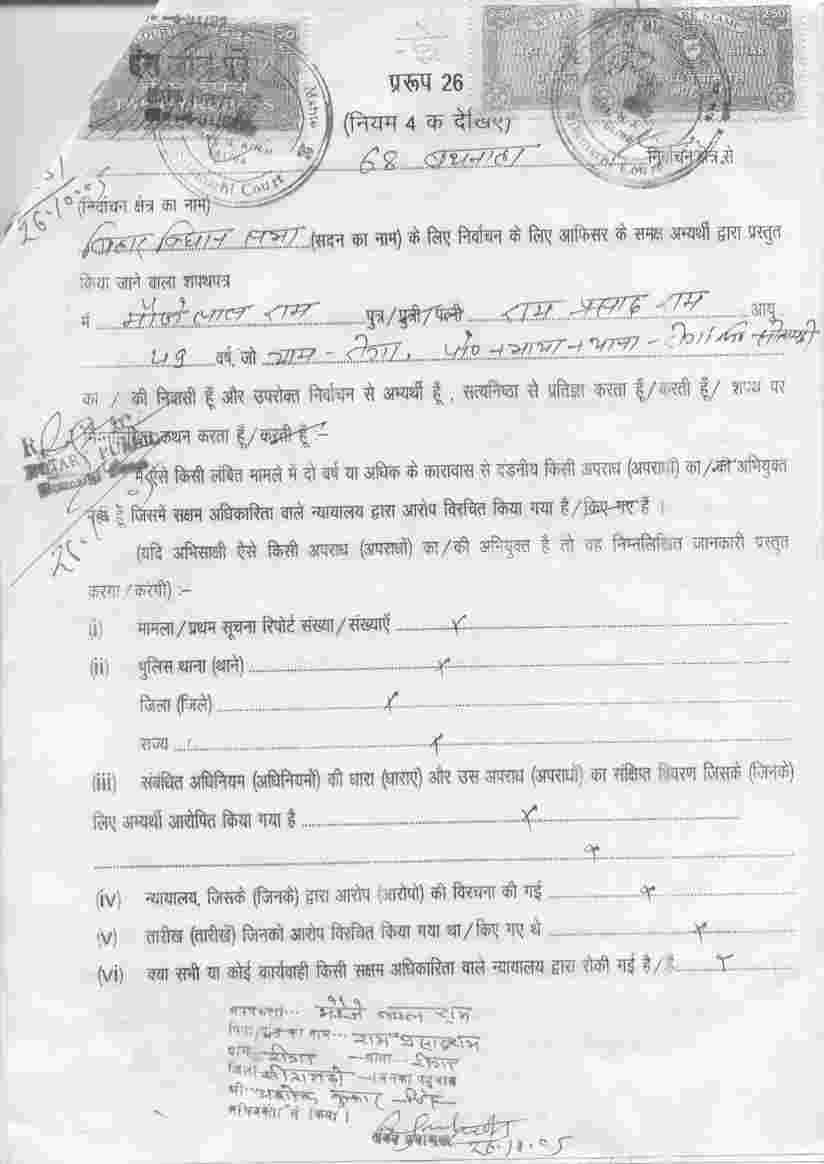 प्ररूप 26
(नियम 4 क देखिए)
68 बथनाहा निर्वाचन क्षेत्र से
26.10.05
(निर्वाचन क्षेत्र का नाम)
बिहार विधान सभा (सदन का नाम) के लिए निर्वाचन के लिए आफिसर के समक्ष अभ्यर्थी द्वारा प्रस्तुत
किया जाने वाला शपथपत्र
मैं मौजे लाल राम पुत्र/पुत्री/पत्नी राम प्रसाद राम आयु
वर्ष, जो ग्राम -
का / की निवासी हूँ और उपरोक्त निर्वाचन से अभ्यर्थी हूँ , सत्यनिष्ठा से प्रतिज्ञा करता हूँ/करती हूँ/ शपथ पर
कथन करता हूँ/करती हूँ :-
मैं ऐसे किसी लंबित मामले में दो वर्ष या अधिक के कारावास से दंडनीय किसी अपराध (अपराधों) का/की अभियुक्त
हूँ जिसमें सक्षम अधिकारिता वाले न्यायालय द्वारा आरोप विरचित किया गया है/किए गए हैं ।
(यदि अभिसाक्षी ऐसे किसी अपराध (अपराधों) का/की अभियुक्त है तो वह निम्नलिखित जानकारी प्रस्तुत
करेगा/करेगी) :-
(i) मामला/प्रथम सूचना रिपोर्ट संख्या/संख्याएँ x
(ii) पुलिस थाना (थाने) x
जिला (जिले) x
राज्य x
(iii) संबंधित अधिनियम (अधिनियमों) की धारा (धाराएं) और उस अपराध (अपराधों) का संक्षिप्त विवरण जिसके (जिनके)
लिए अभ्यर्थी आरोपित किया गया है x
x
(iv) न्यायालय, जिसके (जिनके) द्वारा आरोप (आरोपों) की विरचना की गई x
(v) तारीख (तारीखें) जिनको आरोप विरचित किया गया था/किए गए थे x
(vi) क्या सभी या कोई कार्यवाही किसी सक्षम अधिकारिता वाले न्यायालय द्वारा रोकी गई है/हैं x
लाल राम
का नाम... राम प्रसाद राम
ग्राम थाना
जिला सीतामढ़ी
श्री अशोक कुमार सिंह
26.10.05